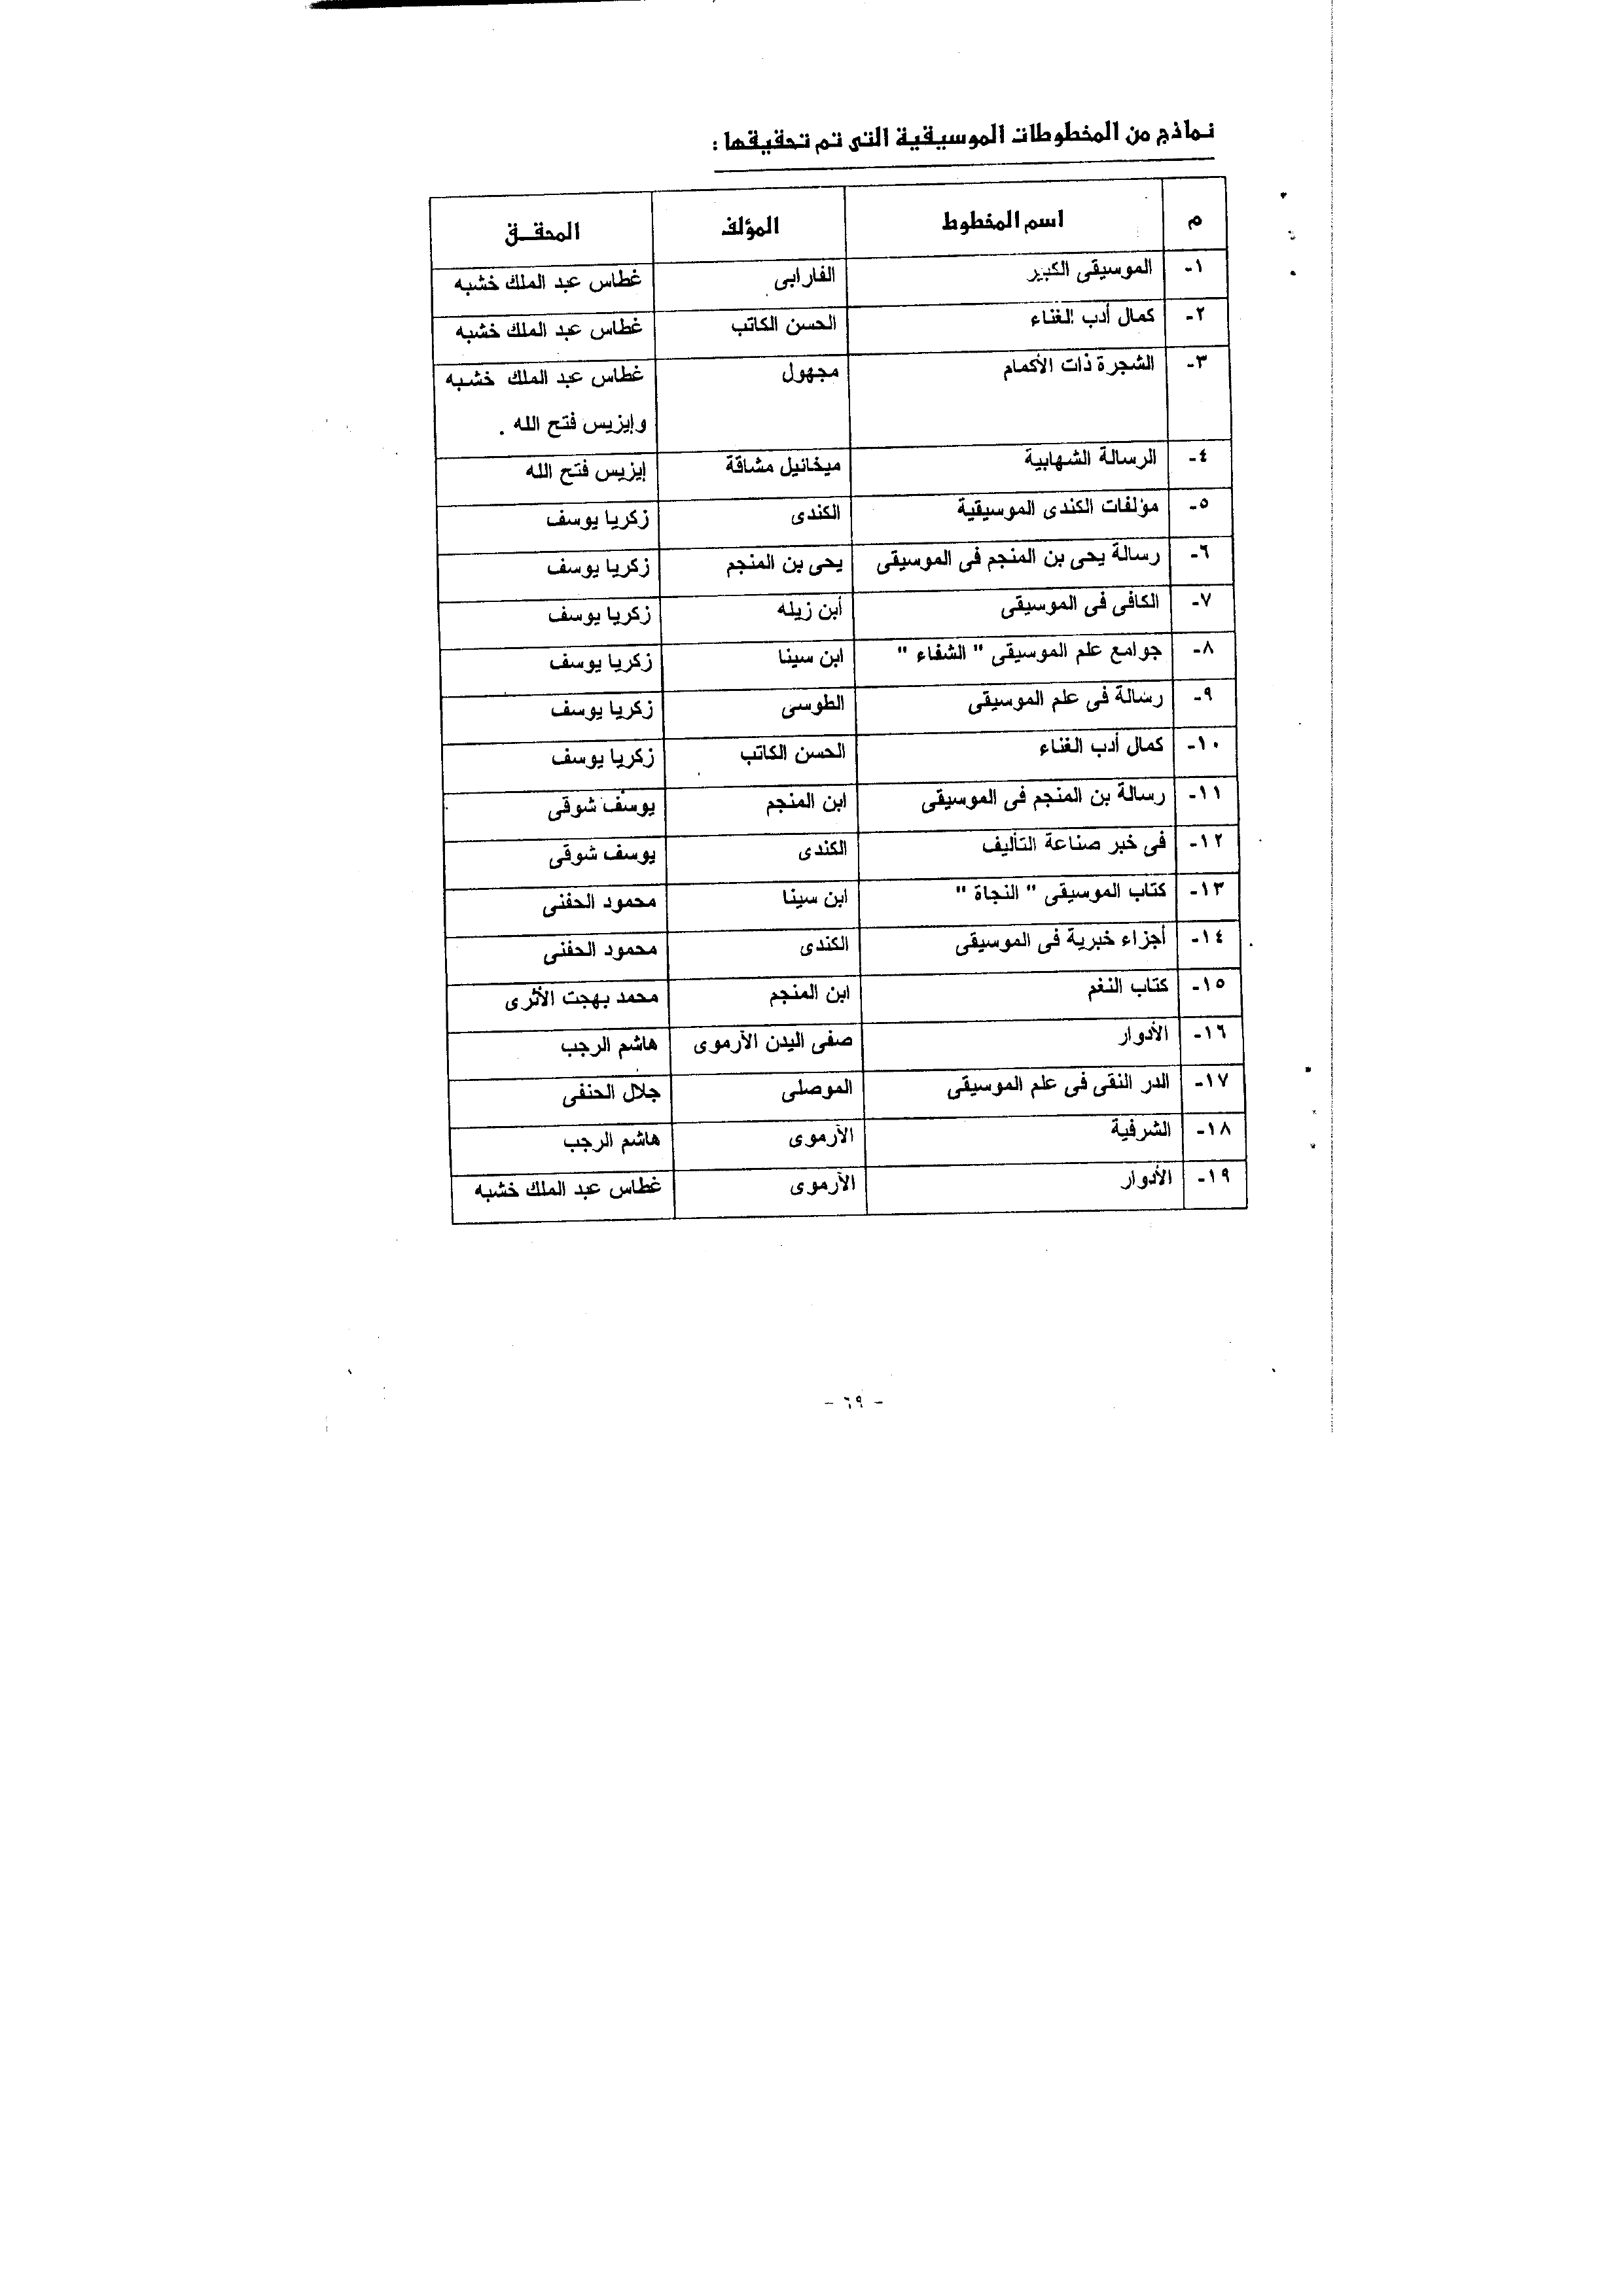 نماذج من المخطوطات الموسيقية التى تم تحقيقها :
م اسم المخطوط المؤلف المحقــق
١- الموسيقى الكبير الفارابى غطاس عبد الملك خشبه
٢- كمال أدب الغناء الحسن الكاتب غطاس عبد الملك خشبه
٣- الشجرة ذات الأكمام مجهول غطاس عبد الملك خشبه
وإيزيس فتح الله .
٤- الرسالة الشهابية ميخائيل مشاقة إيزيس فتح الله
٥- مؤلفات الكندى الموسيقية الكندى زكريا يوسف
٦- رسالة يحى بن المنجم فى الموسيقى يحى بن المنجم زكريا يوسف
٧- الكافى فى الموسيقى أبن زيله زكريا يوسف
٨- جوامع علم الموسيقى " الشفاء " ابن سينا زكريا يوسف
٩- رسالة فى علم الموسيقى الطوسى زكريا يوسف
١٠- كمال أدب الغناء الحسن الكاتب زكريا يوسف
١١- رسالة بن المنجم فى الموسيقى ابن المنجم يوسف شوقى
١٢- فى خبر صناعة التأليف الكندى يوسف شوقى
١٣- كتاب الموسيقى " النجاة " ابن سينا محمود الحفنى
١٤- أجزاء خبرية فى الموسيقى الكندى محمود الحفنى
١٥- كتاب النغم ابن المنجم محمد بهجت الأثرى
١٦- الأدوار صفى اليدن الآرموى هاشم الرجب
١٧- الدر النقى فى علم الموسيقى الموصلى جلال الحنفى
١٨- الشرفية الآرموى هاشم الرجب
١٩- الأدوار الآرموى غطاس عبد الملك خشبه
- ٦٩ -